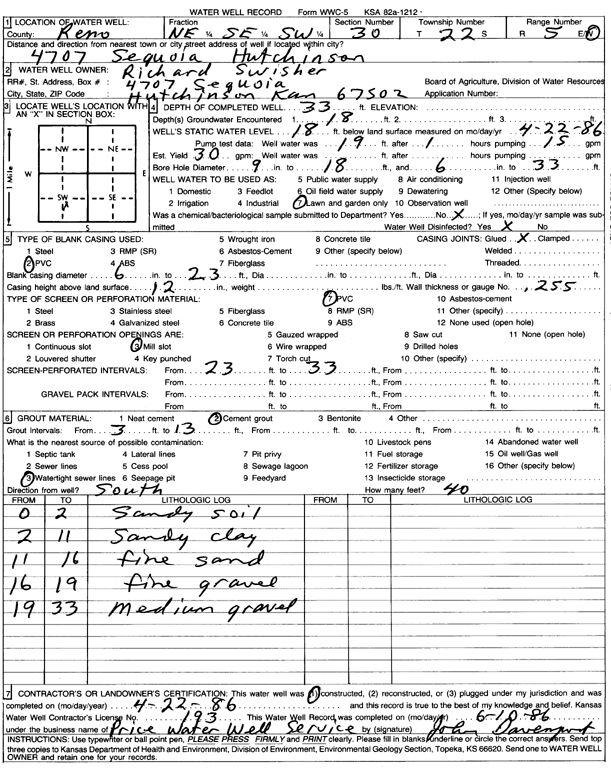 WATER WELL RECORD Form WWC-5 KSA 82a-1212
1 LOCATION OF WATER WELL: Fraction Section Number Township Number Range Number
County: Reno NE ¼ SE ¼ SW ¼ 30 T 22 S R 5 E/W
Distance and direction from nearest town or city street address of well if located within city?
4707 Sequoia Hutchinson
2 WATER WELL OWNER: Richard Swisher
RR#, St. Address, Box # : 4707 Sequoia Board of Agriculture, Division of Water Resources
City, State, ZIP Code : Hutchinson Kan 67502 Application Number:
3 LOCATE WELL'S LOCATION WITH AN "X" IN SECTION BOX:
N
NW NE
W E
SW SE
S
1 Mile
4 DEPTH OF COMPLETED WELL 33 ft. ELEVATION:
Depth(s) Groundwater Encountered 1. 18 ft. 2. ft. 3. ft.
WELL'S STATIC WATER LEVEL 18 ft. below land surface measured on mo/day/yr 4-22-86
Pump test data: Well water was 19 ft. after 1 hours pumping 15 gpm
Est. Yield 30 gpm: Well water was ft. after hours pumping gpm
Bore Hole Diameter 9 in. to 18 ft., and 6 in. to 33 ft.
WELL WATER TO BE USED AS: 5 Public water supply 8 Air conditioning 11 Injection well
1 Domestic 3 Feedlot 6 Oil field water supply 9 Dewatering 12 Other (Specify below)
2 Irrigation 4 Industrial 7 Lawn and garden only 10 Observation well
Was a chemical/bacteriological sample submitted to Department? Yes No X ; If yes, mo/day/yr sample was submitted
Water Well Disinfected? Yes X No
5 TYPE OF BLANK CASING USED: 5 Wrought iron 8 Concrete tile CASING JOINTS: Glued X Clamped
1 Steel 3 RMP (SR) 6 Asbestos-Cement 9 Other (specify below) Welded
2 PVC 4 ABS 7 Fiberglass Threaded
Blank casing diameter 6 in. to 23 ft., Dia in. to ft., Dia in. to ft.
Casing height above land surface 12 in., weight lbs./ft. Wall thickness or gauge No. .255
TYPE OF SCREEN OR PERFORATION MATERIAL: 7 PVC 10 Asbestos-cement
1 Steel 3 Stainless steel 5 Fiberglass 8 RMP (SR) 11 Other (specify)
2 Brass 4 Galvanized steel 6 Concrete tile 9 ABS 12 None used (open hole)
SCREEN OR PERFORATION OPENINGS ARE: 5 Gauzed wrapped 8 Saw cut 11 None (open hole)
1 Continuous slot 3 Mill slot 6 Wire wrapped 9 Drilled holes
2 Louvered shutter 4 Key punched 7 Torch cut 10 Other (specify)
SCREEN-PERFORATED INTERVALS: From 23 ft. to 33 ft., From ft. to ft.
From ft. to ft., From ft. to ft.
GRAVEL PACK INTERVALS: From ft. to ft., From ft. to ft.
From ft. to ft., From ft. to ft.
6 GROUT MATERIAL: 1 Neat cement 2 Cement grout 3 Bentonite 4 Other
Grout Intervals: From 3 ft. to 13 ft., From ft. to ft., From ft. to ft.
What is the nearest source of possible contamination: 10 Livestock pens 14 Abandoned water well
1 Septic tank 4 Lateral lines 7 Pit privy 11 Fuel storage 15 Oil well/Gas well
2 Sewer lines 5 Cess pool 8 Sewage lagoon 12 Fertilizer storage 16 Other (specify below)
3 Watertight sewer lines 6 Seepage pit 9 Feedyard 13 Insecticide storage
Direction from well? South How many feet? 40
FROM TO LITHOLOGIC LOG FROM TO LITHOLOGIC LOG
0 2 Sandy soil
2 11 Sandy clay
11 16 fine sand
16 19 fine gravel
19 33 medium gravel
7 CONTRACTOR'S OR LANDOWNER'S CERTIFICATION: This water well was (1) constructed, (2) reconstructed, or (3) plugged under my jurisdiction and was
completed on (mo/day/year) 4-22-86 and this record is true to the best of my knowledge and belief. Kansas
Water Well Contractor's License No. 193 This Water Well Record was completed on (mo/day/yr) 6-10-86
under the business name of Price Water Well Service by (signature) John Davenport
INSTRUCTIONS: Use typewriter or ball point pen, PLEASE PRESS FIRMLY and PRINT clearly. Please fill in blanks, underline or circle the correct answers. Send top
three copies to Kansas Department of Health and Environment, Division of Environment, Environmental Geology Section, Topeka, KS 66620. Send one to WATER WELL
OWNER and retain one for your records.